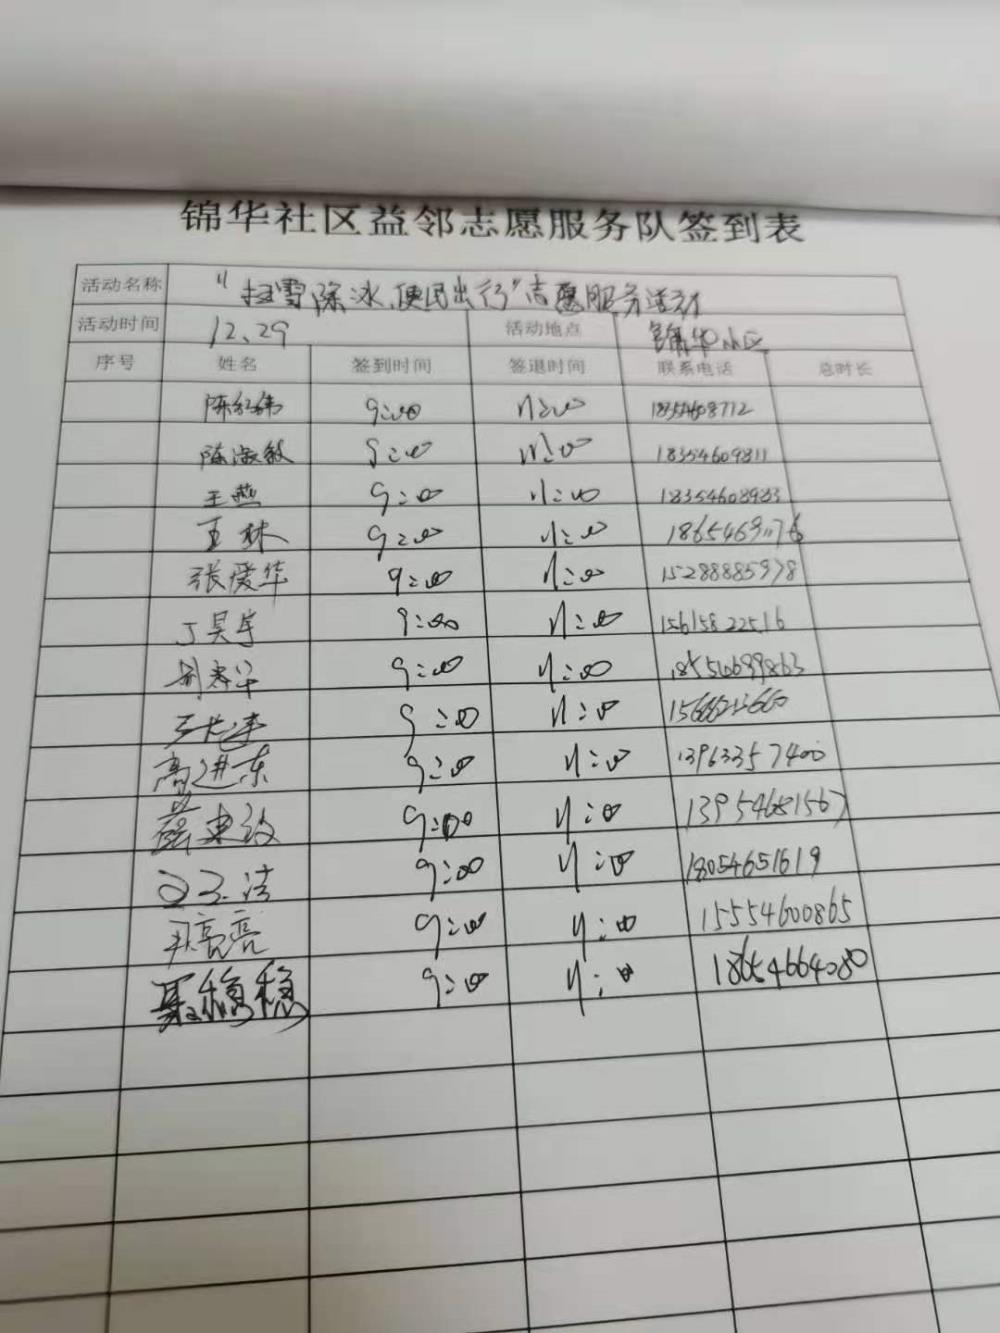 锦华社区益邻志愿服务队签到表
活动名称 “扫雪除冰、便民出行”志愿服务活动
活动时间 12.29 活动地点 锦华小区
序号 姓名 签到时间 签退时间 联系电话 总时长
陈红伟 9:00 11:00 18554608712
陈淑敏 9:00 11:00 18354609811
王燕 9:00 11:00 18354608983
王林 9:00 11:00
张爱华 9:00 11:00 15288885978
丁昊宇 9:00 11:00 15615822516
9:00 11:00
9:00 11:00
高进东 9:00 11:00 13963357400
9:00 11:00 13954681567
9:00 11:00 18054651619
尹亮亮 9:00 11:00 15554600865
聂稳稳 9:00 11:00 18654664080